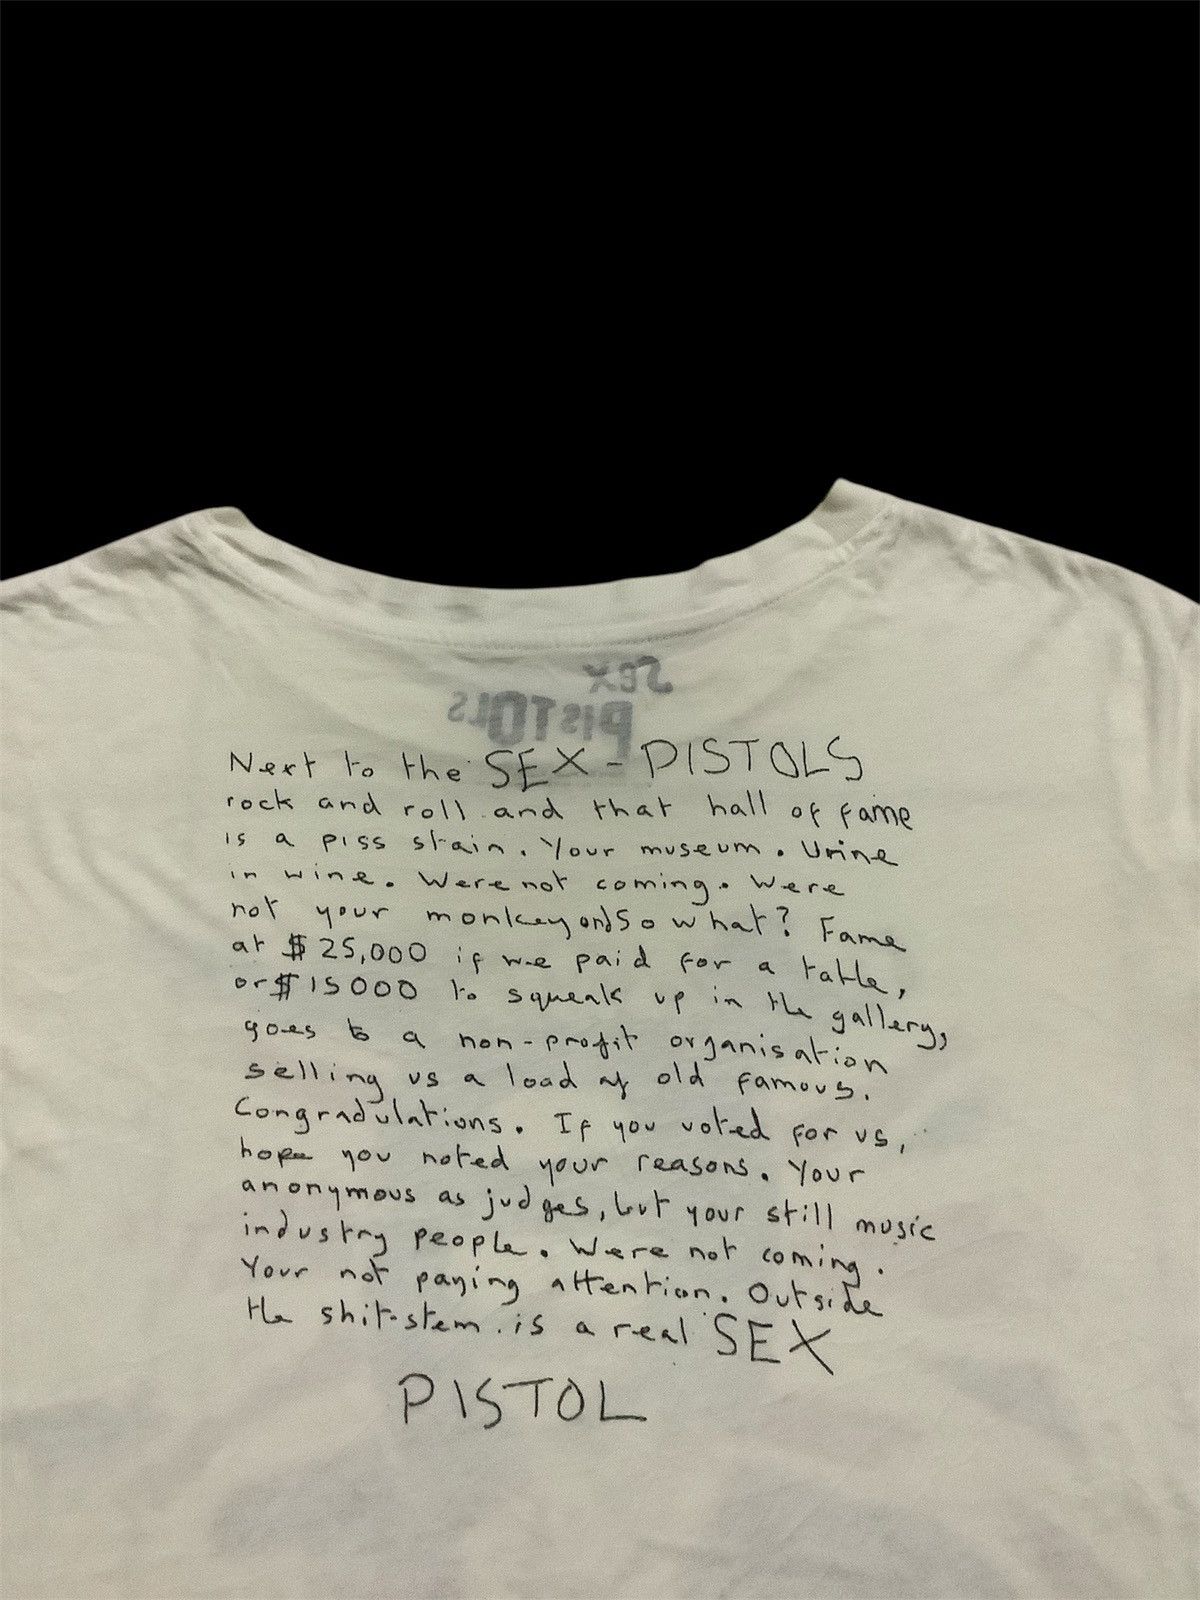 SEX
PISTOLS
Next to the SEX-PISTOLS
rock and roll and that hall of fame
is a piss stain. Your museum. Urine
in wine. Were not coming. Were
not your monkey and so what? Fame
at $25,000 if we paid for a table,
or $15000 to squeak up in the gallery,
goes to a non-profit organisation
selling us a load of old famous.
Congradulations. If you voted for us,
hope you noted your reasons. Your
anonymous as judges, but your still music
industry people. Were not coming.
Your not paying attention. Outside
the shit-stem is a real SEX
PISTOL